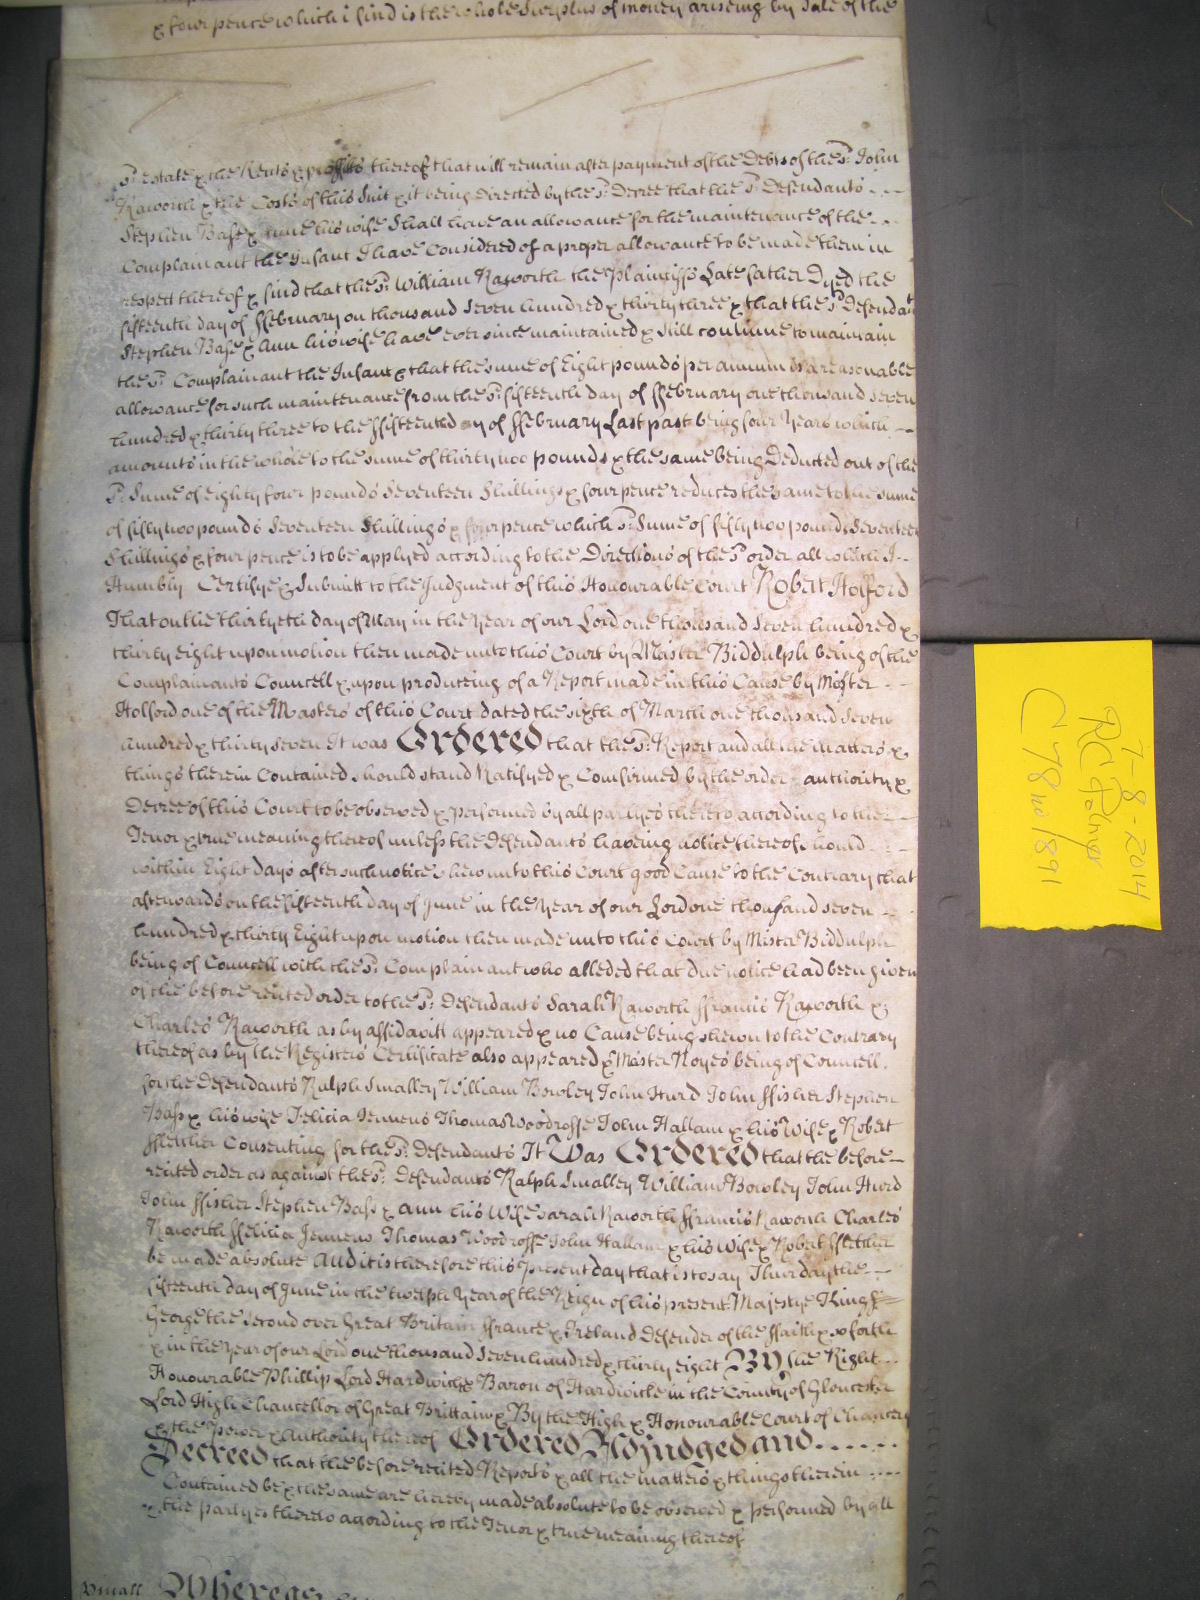 & four pence which i find is the whole Surplus of money ariseing by Sale of the
sd: estate & the Rents & proffitts thereof that will remain after payment of the Debts of the sd: John
Raworth & the Costs of this Suit & it being directed by the sd: Decree that the sd: Defendants
Stephen Bass & Anne his wife Shall have an allowance for the maintenance of the
Complainant the Infant I have Considered of a proper allowance to be made them in
respect thereof & find that the sd: William Raworth the Plaintiffs Late father Dyed the
fifteenth day of ffebruary on thousand Seven hundred & thirty three & that the sd: Defendant
Stephen Bass & Ann his wife have ever since maintained & Still continue to maintain
the sd: Complainant the Infant & that the sume of Eight pounds per annum is a reasonable
allowance for such maintenance from the sd: fifteenth day of ffebruary one thousand seven
hundred & thirty three to the ffifteenth day of ffebruary Last past being four Years which
amounts in the whole to the sume of thirty two pounds & the same being Deducted out of the
sd: Sume of eighty four pounds Seventeen Shillings & four pence reduces the same to the sume
of fifty two pounds Seventeen Shillings & four pence which sd: Sume of fifty two pounds Seventeen
Shillings & four pence is to be applyed according to the Directions of the sd: order all which I
Humbly Certifye & Submitt to the Judgment of this Honourable Court Robert Holford
That on the thirtyeth day of May in the Year of our Lord one thousand Seven hundred &
thirty eight upon motion then made unto this Court by Master Biddulph being of the
Complainants Councell & upon produceing of a Report made in this Cause by Master
Holford one of the Masters of this Court dated the sixth of March one thousand seven
hundred & thirty seven It was Ordered that the sd: Report and all the matters &
things therein Contained should stand Ratifyed & Confirmed by the order authority &
Decree of this Court to be observed & performed by all partyes thereto according to the
Tenor & true meaning thereof unless the Defendants haveing notice thereof should
within Eight days after such notice shew unto this Court good Cause to the Contrary that
afterwards on the fifteenth day of June in the Year of our Lord one thousand seven
hundred & thirty Eight upon motion then made unto this Court by Master Biddulph
being of Councell with the sd: Complainant who alledged that due notice had been given
of the before recited order to the sd: Defendants Sarah Raworth ffrancis Raworth &
Charles Raworth as by affidavitt appeared & no Cause being shewn to the Contrary
thereof as by the Registers Certificate also appeared & Master Noyes being of Councell
for the Defendants Ralph Smalley William Bowley John Hurd John ffisher Stephen
Bass & his wife Felicia Jennens Thomas Woodroffe John Hallam & his Wife & Robert
ffletcher Consenting for the sd: Defendants It Was Ordered that the before
recited order as against the sd: Defendants Ralph Smalley William Bowley John Hurd
John ffisher Stephen Bass & Ann his Wife Sarah Raworth ffrancis Raworth Charles
Raworth ffelicia Jennens Thomas Woodroffe John Hallam & his Wife & Robert ffletcher
be made absolute And it is therefore this present day that is to say Thursday the
fifteenth day of June in the twelfth Year of the Reign of his present Majestye King
George the Second over Great Britain ffrance & Ireland Defender of the ffaith & so forth
& in the Year of our Lord one thousand Seven hundred & thirty eight By the Right
Honourable Phillip Lord Hardwicke Baron of Hardwicke in the County of Gloucester
Lord High Chancellor of Great Brittain & By the High & Honourable Court of Chancery
& the Power & Authority thereof Ordered Adjudged and
Decreed that the before recited Reports & all the matters & things therein
Contained be & the same are hereby made absolute to be observed & performed by all
the partyes thereto according to the Tenor & true meaning thereof
Whereas
7-8-2014
RC Palmer
C 78 no 1891